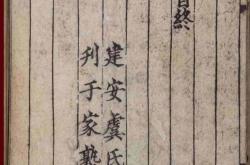 目終
建安虞氏
刊于家塾